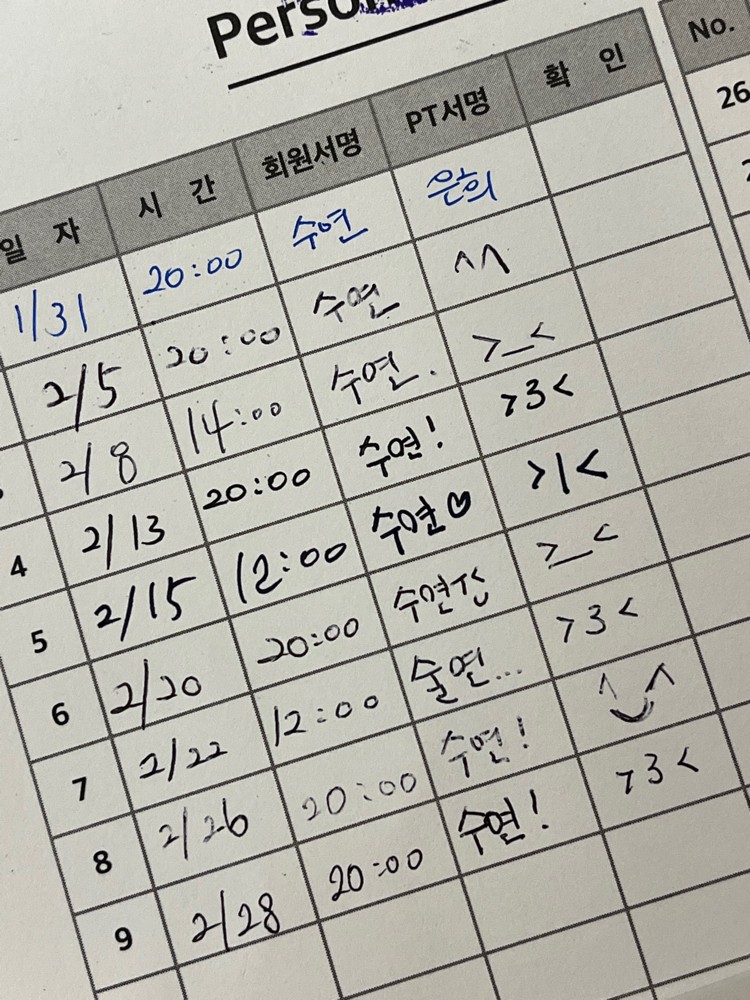 Perso
일 자 시 간 회원서명 PT서명 확 인
1/31 20:00 수연 은희
2/5 20:00 수연 ^^
2/8 14:00 수연. >_<
4 2/13 20:00 수연! >3<
5 2/15 12:00 수연♡ >1<
6 2/20 20:00 >_<
7 2/22 12:00 술연... >3<
8 2/26 20:00 수연!
9 2/28 20:00 수연! >3<
No.
26